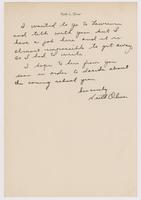 I wanted to go to Lawrence
and talk with you but I
have a job here and it is
almost impossible to get away
so I had to write.
I hope to hear from you
soon in order to decide about
the coming school year.
Sincerely